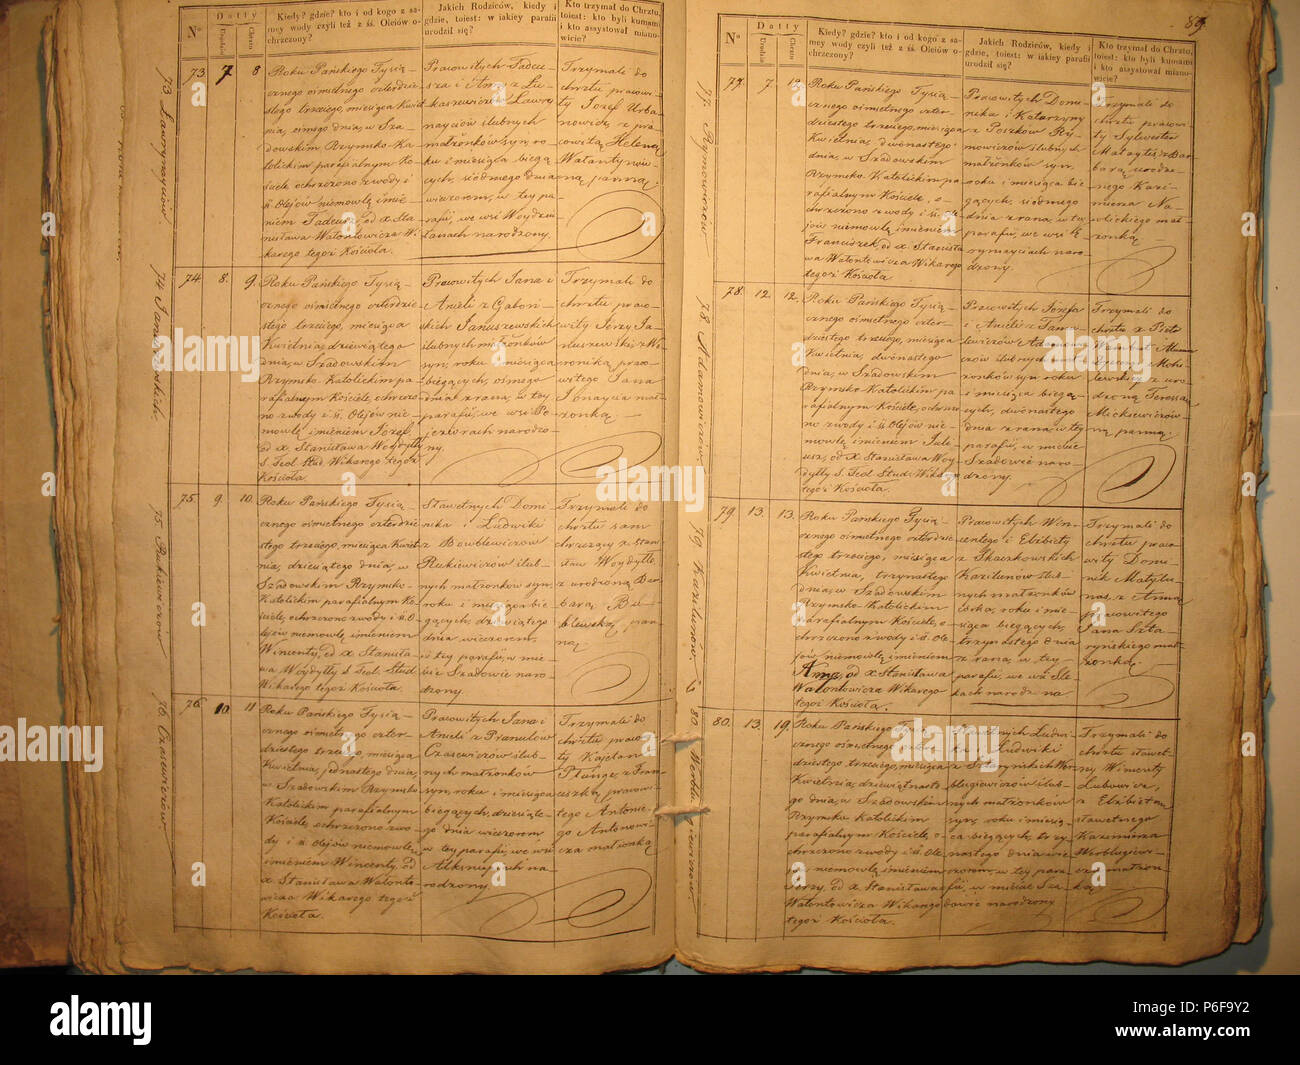 N°
Datty
Urodzin
Chrztu
Kiedy? gdzie? kto i od kogo z samey wody czyli też z śś. Oleiów ochrzczony?
Jakich Rodziców, kiedy i gdzie, toiest: w iakiey parafii urodził się?
Kto trzymał do Chrztu, toiest: kto byli kumami i kto assystował mianowicie?
73
7
8
Roku Pańskiego Tysią-
cznego ośmsetnego czterdzie-
stego trzeciego, miesiąca Kwiet-
nia, ósmego dnia, w Sza-
dowskim Rzymsko-Ka-
tolickim parafialnym Ko-
ściele ochrzczono z wody i
śś. Olejów niemowlę imie-
niem Tadeusz, od x. Sta-
nisława Walontowicza Wi-
karego tegoż Kościoła.
Pracowitych Tadeu-
sza i Anny z Łu-
kaszewiczów Ławry-
nayciów ślubnych
małżonków syn, ro-
ku i miesiąca bieżą-
cych, siódmego dnia
wieczorem, w tey pa-
rafii, we wsi Woydzu-
lanach narodzony.
Trzymali do
chrztu pracowi-
ty Jozef Urba-
nowicz, z pra-
cowitą Heleną
Walantynowi-
ną panną.
74
8.
9.
Roku Pańskiego Tysią-
cznego ośmsetnego czterdzie-
stego trzeciego, miesiąca
Kwietnia, dziewiątego
dnia, w Szadowskim
Rzymsko-Katolickim pa-
rafialnym Kościele, ochrzczo-
no z wody i śś. Olejów nie-
mowlę imieniem Jozef,
od x. Stanisława Woydyłły
S. Teol. Stud. Wikarego tegoż
Kościoła.
Pracowitych Jana i
Anieli z Gabory-
skich Januszewskich
ślubnych małżonków
syn, roku i miesiąca
bieżących, ósmego
dnia z rana, w tey
parafii, we wsi Po-
jeziorach narodzo-
ny.
Trzymali do
chrztu praco-
wity Jerzy Ja-
nuszewski z We-
roniką praco-
witego Jana
Ignayca mał-
żonką.
75
9.
10.
Roku Pańskiego Tysią-
cznego ośmsetnego czterdzie-
stego trzeciego, miesiąca Kwiet-
nia, dziesiątego dnia, w
Szadowskim Rzymsko-
Katolickim parafialnym Ko-
ściele, ochrzczono z wody i śś. O-
lejów niemowlę imieniem
Wincenty, od x. Stanisła-
wa Woydyłły S. Teol. Stud.
Wikarego tegoż Kościoła.
Sławetnych Domi-
nika i Ludwiki
z Bowblewiczów
Rukiewiczów ślub-
nych małżonków syn,
roku i miesiąca bie-
żących, dziewiątego
dnia wieczorem,
w tey parafii, w mie-
ście Szadowie naro-
dzony.
Trzymali do
chrztu sam
chrzczący x. Stani-
sław Woydyłło
z urodzoną Bar-
barą
blewską pan-
ną
76
10.
11
Roku Pańskiego Tysią-
cznego ośmsetnego czter-
dziestego trzeciego, miesiąca
Kwietnia, jednastego dnia,
w Szadowskim Rzymsko
Katolickim parafialnym
Kościele, ochrzczono z wo-
dy i śś Olejów niemowlę,
imieniem Wincenty, od
x. Stanisława Walonto-
wicza Wikarego tegoż
Kościoła.
Pracowitych Jana i
Anieli z Pranulów
Czasewiczów ślub-
nych małżonków
syn, roku i miesiąca
bieżących, dziesiąte-
go dnia wieczorem
w tey parafii, we wsi
na-
rodzony.
Trzymali do
chrztu praco-
wity Kajetan
Plunge, z Fran-
ciszką, pracowi-
tego Antonie-
go Antonowi-
cza małżonką
73 Ławrynayciow.
74 Januszewskich.
75 Rukiewiczów
76 Czasewiczów
N°
Datty
Urodzin
Chrztu
Kiedy? gdzie? kto i od kogo z samey wody czyli też z śś. Oleiów ochrzczony?
Jakich Rodziców, kiedy i gdzie, toiest: w iakiey parafii urodził się?
Kto trzymał do Chrztu, toiest: kto byli kumami i kto assystował mianowicie?
77.
7
12.
Roku Pańskiego Tysią-
cznego ośmsetnego czter-
dziestego trzeciego, miesiąca
Kwietnia, dwónastego
dnia, w Szadowskim
Rzymsko-Katolickim pa-
rafialnym Kościele, o-
chrzczono z wody i śś. Ole-
jów niemowlę imieniem
Franciszek, od x. Stanisła-
wa Walontowicza Wikarego
tegoż Kościoła.
Pracowitych Domi-
nika i Katarzyny
z Poszków Ry-
mowiczów ślubnych
małżonków syn,
roku i miesiąca bie-
żących, siódmego
dnia z rana, w tey
parafii, we wsi
narо-
dzony.
Trzymali do
chrztu pracowi-
ty Sylwester
Matays z Bar-
barą urodzo-
niego Kazi-
mierza Na-
wlickiego mał-
żonką.
78.
12.
12.
Roku Pańskiego Tysią-
cznego ośmsetnego czter-
dziestego trzeciego, miesiąca
Kwietnia, dwónastego
dnia, w Szadowskim
Rzymsko-Katolickim pa-
rafialnym Kościele, ochrzczo-
no z wody i śś Olejów nie-
mowlę imieniem Jule-
usz, od x. Stanisława Woy-
dyłły S. Teol. Stud. Wikarego
tegoż Kościoła.
Pracowitych Józefa
i Anieli z Tama-
szewiczów Adamowi-
czów ślubnych mał-
żonków syn, roku
i miesiąca bieżą-
cych, dwónastego
dnia z rana w tey
parafii, w mieście
Szadowie naro-
dzony.
Trzymali do
chrztu x Piotr
Mohi-
lewskiey z uro-
dzoną Teresą
Mickiewiczów-
ną panną.
79
13.
13.
Roku Pańskiego Tysią-
cznego ośmsetnego czterdzie-
stego trzeciego, miesiąca
Kwietnia, trzynastego
dnia, w Szadowskim
Rzymsko-Katolickim
parafialnym Kościele, o-
chrzczono z wody i śś. Ole-
jów niemowlę imieniem
Anna, od x Stanisława
Walontowicza Wikarego
tegoż Kościoła.
Pracowitych Win-
centego i Elżbiety
z Skaczkowskich
Kazilunów ślub-
nych małżonków
córka, roku i mie-
siąca bieżących,
trzynastego dnia
z rana, w tey
parafii, we wsi Śle-
kach narodzona
Trzymali do
chrztu praco-
wity Domi-
nik Matylu-
nas, z Anną
pracowitego
Jana Szta-
ryńskiego mał-
żonką.
80.
13.
19.
Roku Pańskiego Tysią-
cznego ośmsetnego czter-
dziestego trzeciego, miesiąca
Kwietnia, dziewiątnaste-
go dnia, w Szadowskim
Rzymsko Katolickim
parafialnym Kościele, o-
chrzczono z wody i śś. Ole-
jów niemowlę imieniem
Jerzy, od x Stanisława
Walontowicza Wikarego
tegoż Kościoła.
Sławetnych Ludwi-
ka i Ludwiki
z Werbługiewiczów ślub-
nych małżonków
syn, roku i miesią-
ca bieżących, trzy-
nastego dnia wie-
czorem, w tey para-
fii, w mieście Sza-
dowie narodzony
Trzymali do
chrztu sławet-
ny Wincenty
Lubowicz,
z Elżbietą
sławetnego
Kazimierza
Werbługiewi-
cza małżon-
ką.
77 Rymowiczów
78 Adamowiczów
79 Kazilunów.
80. Werbługiewiczów.
alamy
Image ID: P6F9Y2
www.alamy.com